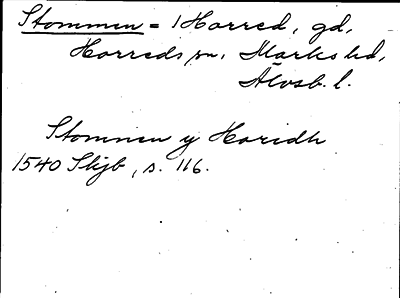 Stommen = 1 Horred, gd,
Horreds sn, Marks hd,
Älvsb. l.
Stomnen y Horidh
1540 Skjb, s. 116.